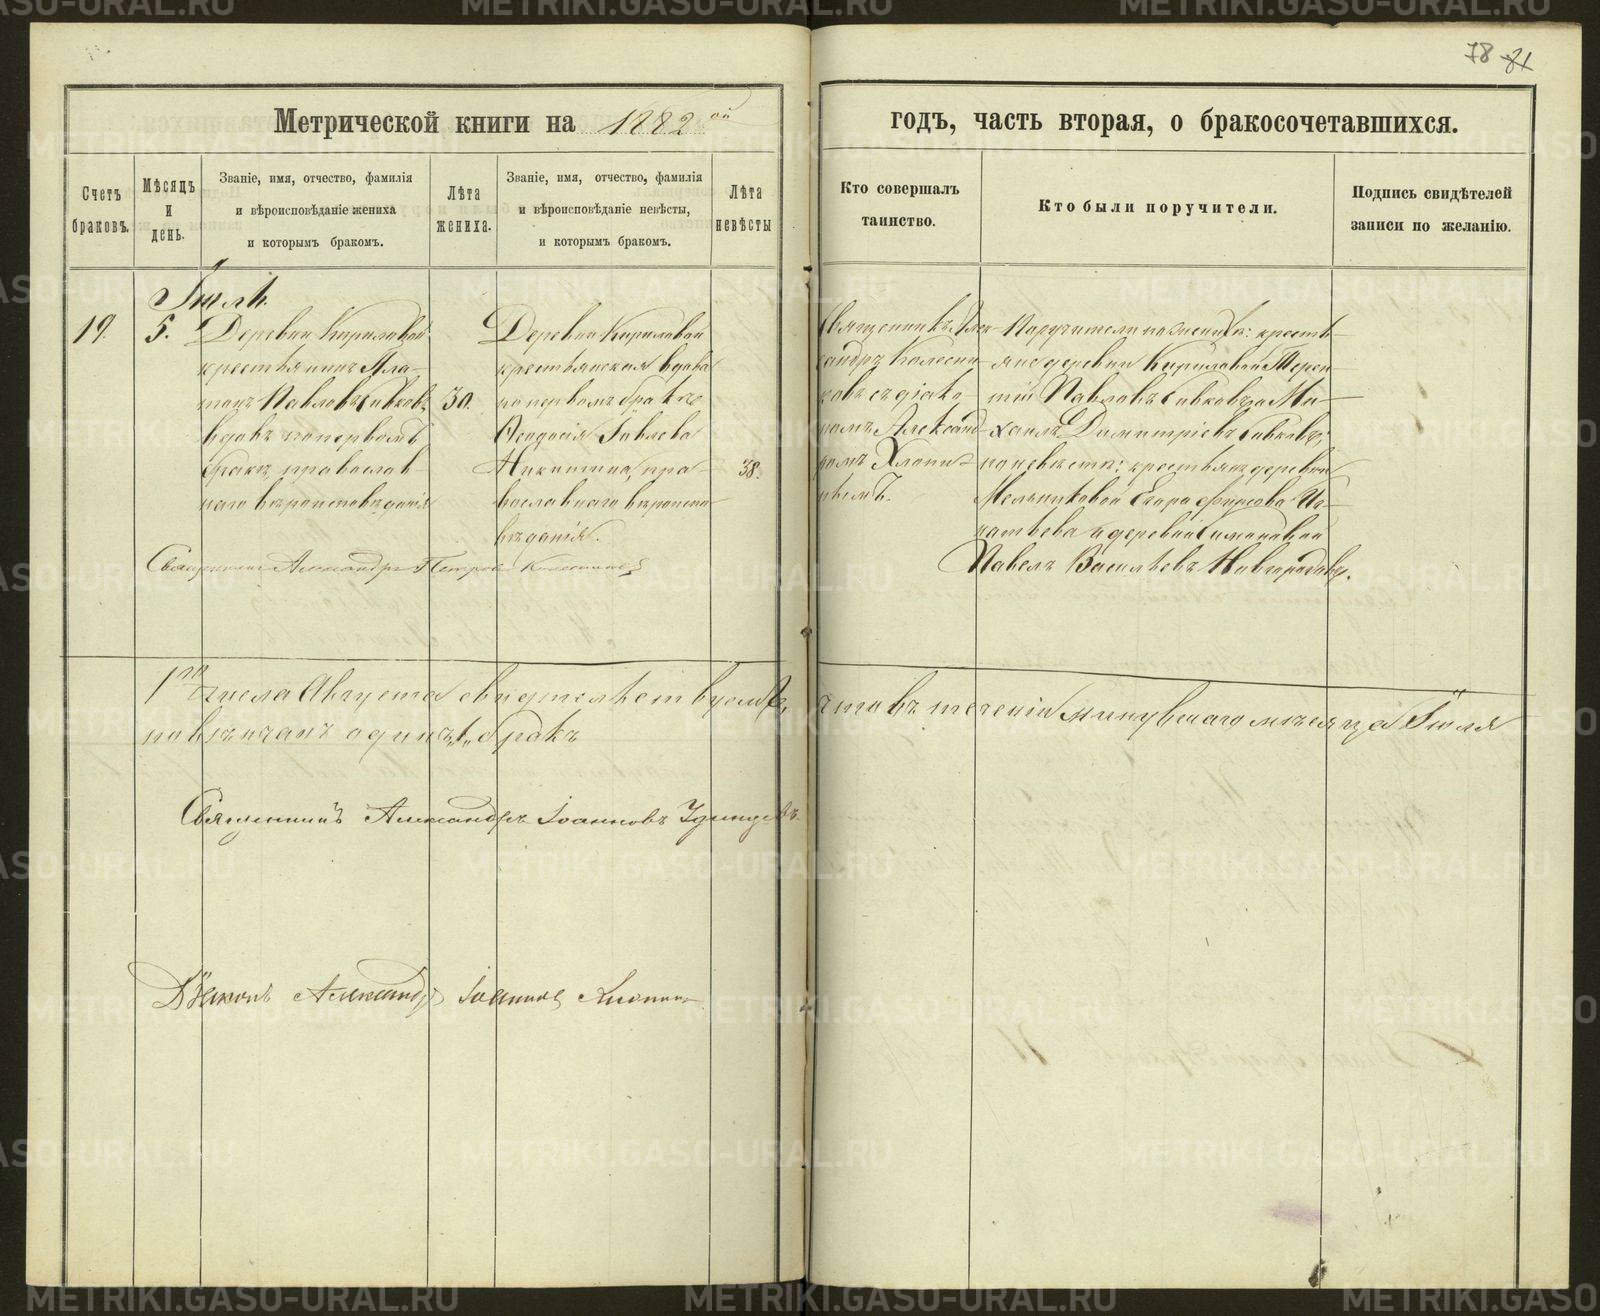 78 81
Метрической книги на 1882ой
годъ, часть вторая, о бракосочетавшихся.
Счетъ браковъ.
Мѣсяцъ и день.
Званіе, имя, отчество, фамилія
и вѣроисповѣданіе жениха
и которымъ бракомъ.
Лѣта жениха.
Званіе, имя, отчество, фамилія
и вѣроисповѣданіе невѣсты,
и которымъ бракомъ.
Лѣта невѣсты
Кто совершалъ
таинство.
Кто были поручители.
Подпись свидѣтелей
записи по желанію.
Іюль
19. 5.
Деревни Кириловой
крестьянинъ Пла-
тонъ Павловъ Сивковъ,
вдовъ по первомъ
бракѣ, православ-
наго вѣроисповѣданія
30.
Деревни Кириловой
крестьянская вдова
по первомъ бракѣ
Ѳеодосія
Никитина, пра-
вославнаго вѣроиспо-
вѣданія.
38.
Священникъ Алек-
сандръ Колесни-
ковъ съ діако-
номъ Александ-
ромъ Хлопи-
нымъ.
Поручители по женихѣ: кресть-
яне деревни Кириловой Терен-
тій Павловъ Сивковъ и Ми-
хаилъ Димитріевъ Сивковъ;
по невѣстѣ: крестьяне деревни
Мельниковой Егоръ Фирсовъ Иг-
натьевъ и деревни Симоновой
Павелъ Васильевъ Новгородовъ.
Священникъ Александръ Петровъ Колесниковъ
1го числа Августа свидѣтельствуемъ, что въ теченіи минувшаго мѣсяца Іюля
повѣнчанъ одинъ „1„ бракъ
Священникъ Александръ Іоанновъ Удинцевъ
Діаконъ Александръ Іоанновъ Хлопинъ
METRIKI.GASO-URAL.RU